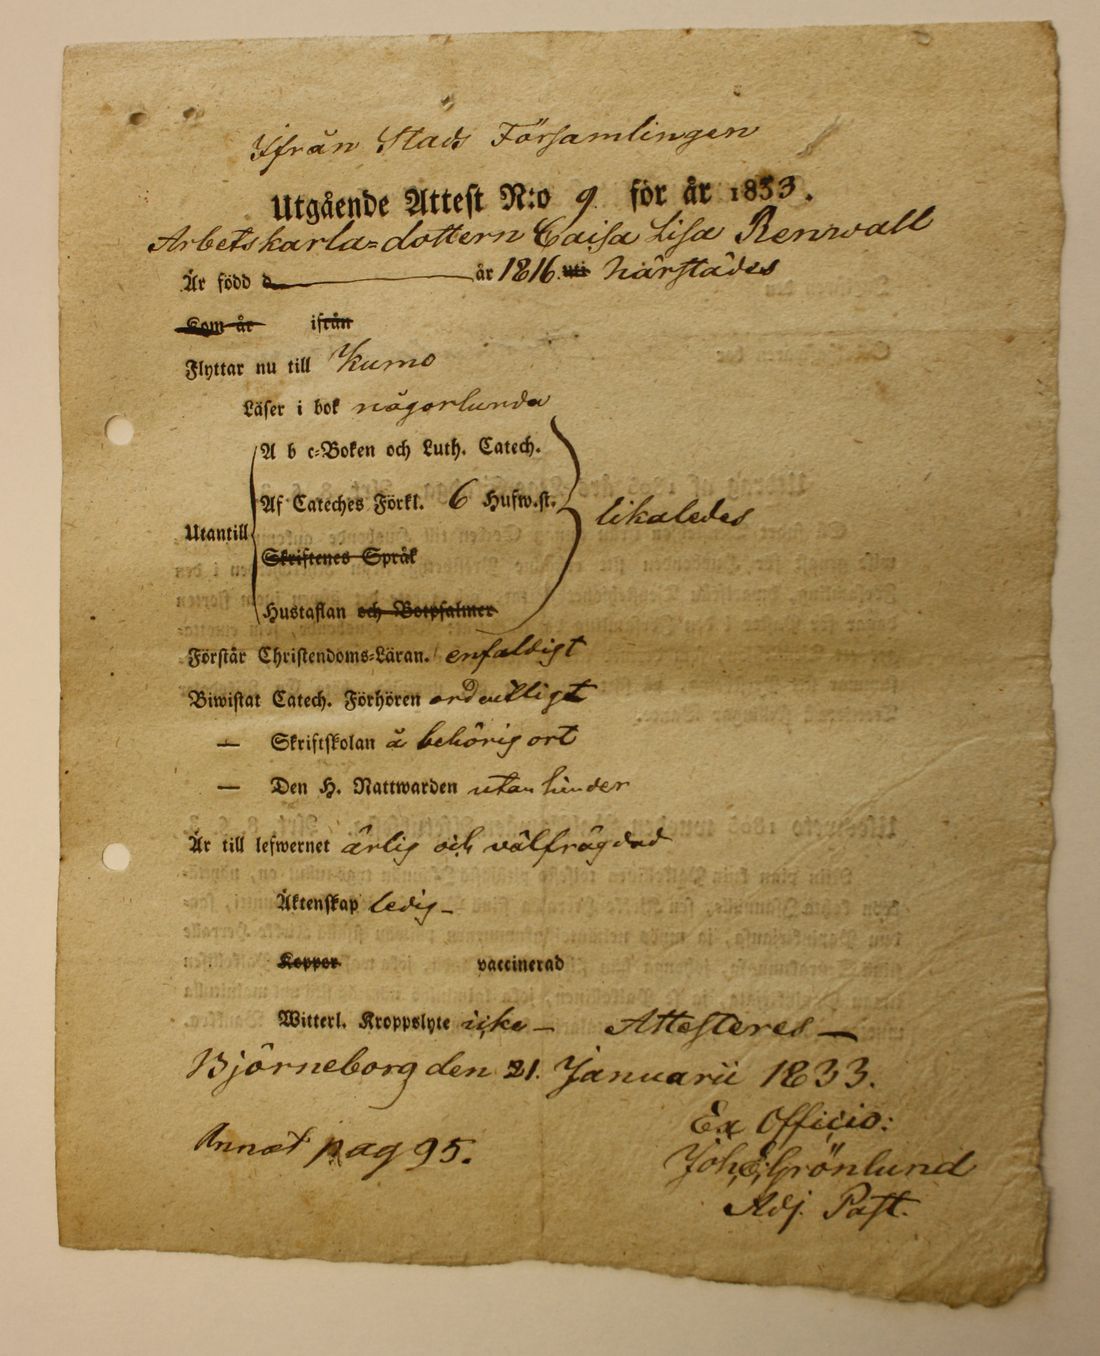 Ifrån Stads Församlingen
Utgående Attest N:o 9 för år 1833.
Arbetskarla=dottern Caisa Lisa Renwall
Är född d. år 1816 uti härstädes
Kom år ifrån
Flyttar nu till Kumo
Läser i bok någorlunda
A b c=Boken och Luth. Catech.
Af Cateches Förkl. 6 Hufw.st. likaledes
Utantill
Skriftenes Språk
Hustaflan och Botpsalmer
Förstår Christendoms=Läran. enfaldigt
Biwistat Catech. Förhören ordentligt
— Skriftskolan å behörig ort
— Den H. Nattwarden utan hinder
Är till lefwernet ärlig och välfrägdad
Äktenskap ledig –
Koppor vaccinerad
Witterl. Kroppslyte icke – Attesteres —
Björneborg den 21. Januarii 1833.
Ex Officio:
Annot pag 95.
Joh. E. Grönlund
Adj. Past.